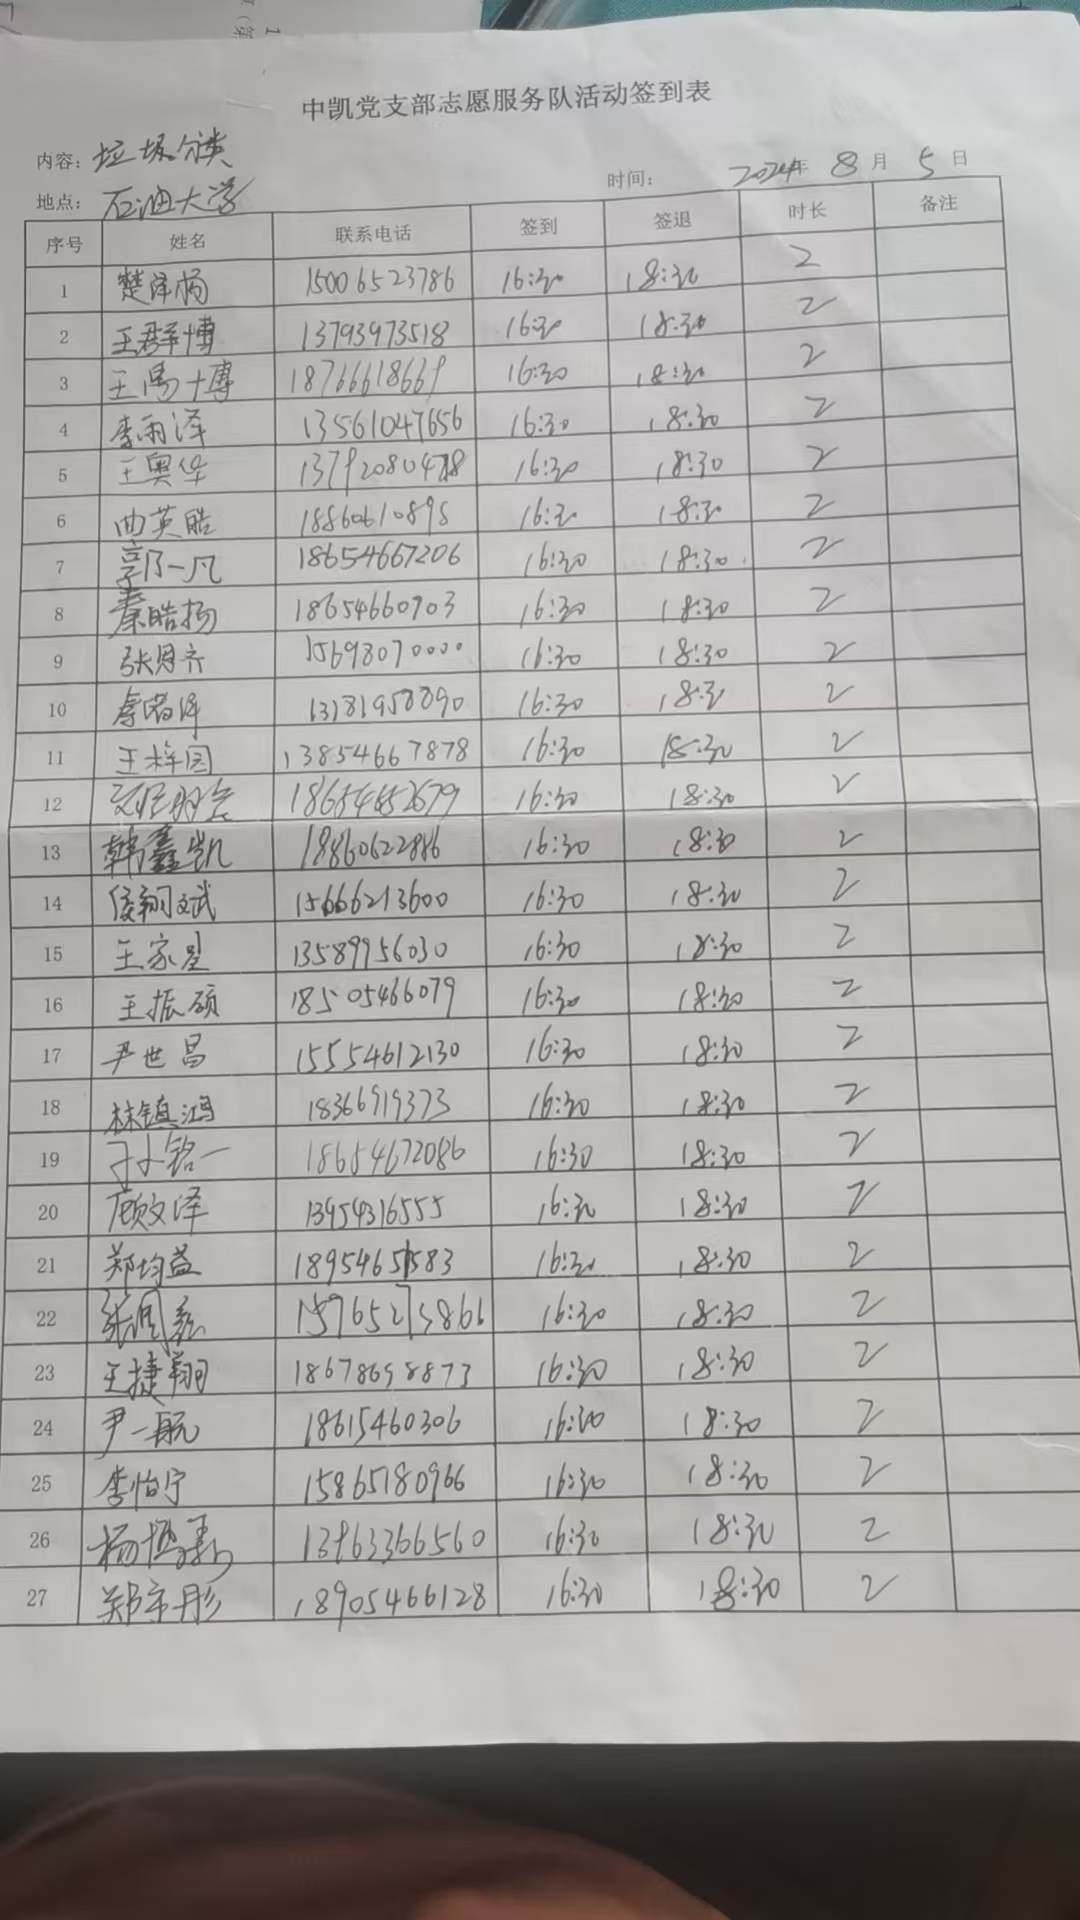 中凯党支部志愿服务队活动签到表
内容: 垃圾分类
地点: 石油大学 时间: 2024年 8月 5日
序号 姓名 联系电话 签到 签退 时长 备注
1 楚泽杨 15006523786 16:30 18:30 2
2 王群博 13793973518 16:30 18:30 2
3 王禹博 18766618669 16:30 18:30 2
4 李雨泽 13561047656 16:30 18:30 2
5 王奥华 13792080478 16:30 18:30 2
6 曲英皓 18860610895 16:30 18:30 2
7 郭一凡 18654667206 16:30 18:30 2
8 秦皓扬 18654660903 16:30 18:30 2
9 张恩齐 15698070000 16:30 18:30 2
10 13181958890 16:30 18:30 2
11 王梓园 13854667878 16:30 18:30 2
12 18654652679 16:30 18:30 2
13 韩鑫凯 18860622886 16:30 18:30 2
14 侯翔斌 15666213600 16:30 18:30 2
15 王家星 13589956030 16:30 18:30 2
16 王振硕 18505466079 16:30 18:30 2
17 尹世昌 15554612130 16:30 18:30 2
18 林镇鸿 18366919373 16:30 18:30 2
19 孙铭一 18654672086 16:30 18:30 2
20 顾文泽 13954316555 16:30 18:30 2
21 郑均益 18954651583 16:30 18:30 2
22 15765273866 16:30 18:30 2
23 王捷翔 18678698873 16:30 18:30 2
24 尹一航 18615460306 16:30 18:30 2
25 李怡宁 15865180966 16:30 18:30 2
26 13963366560 16:30 18:30 2
27 18905466128 16:30 18:30 2